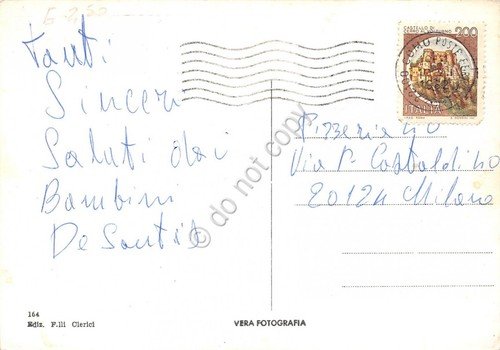 E 2,50
Tanti
Sinceri
Saluti dai
Bambini
De Santis
CASTELLO DI
200
ITALIA
Pizzeria
Via P. Castaldi
20124 Milano
© do not copy
164
Ediz. F.lli Clerici
VERA FOTOGRAFIA